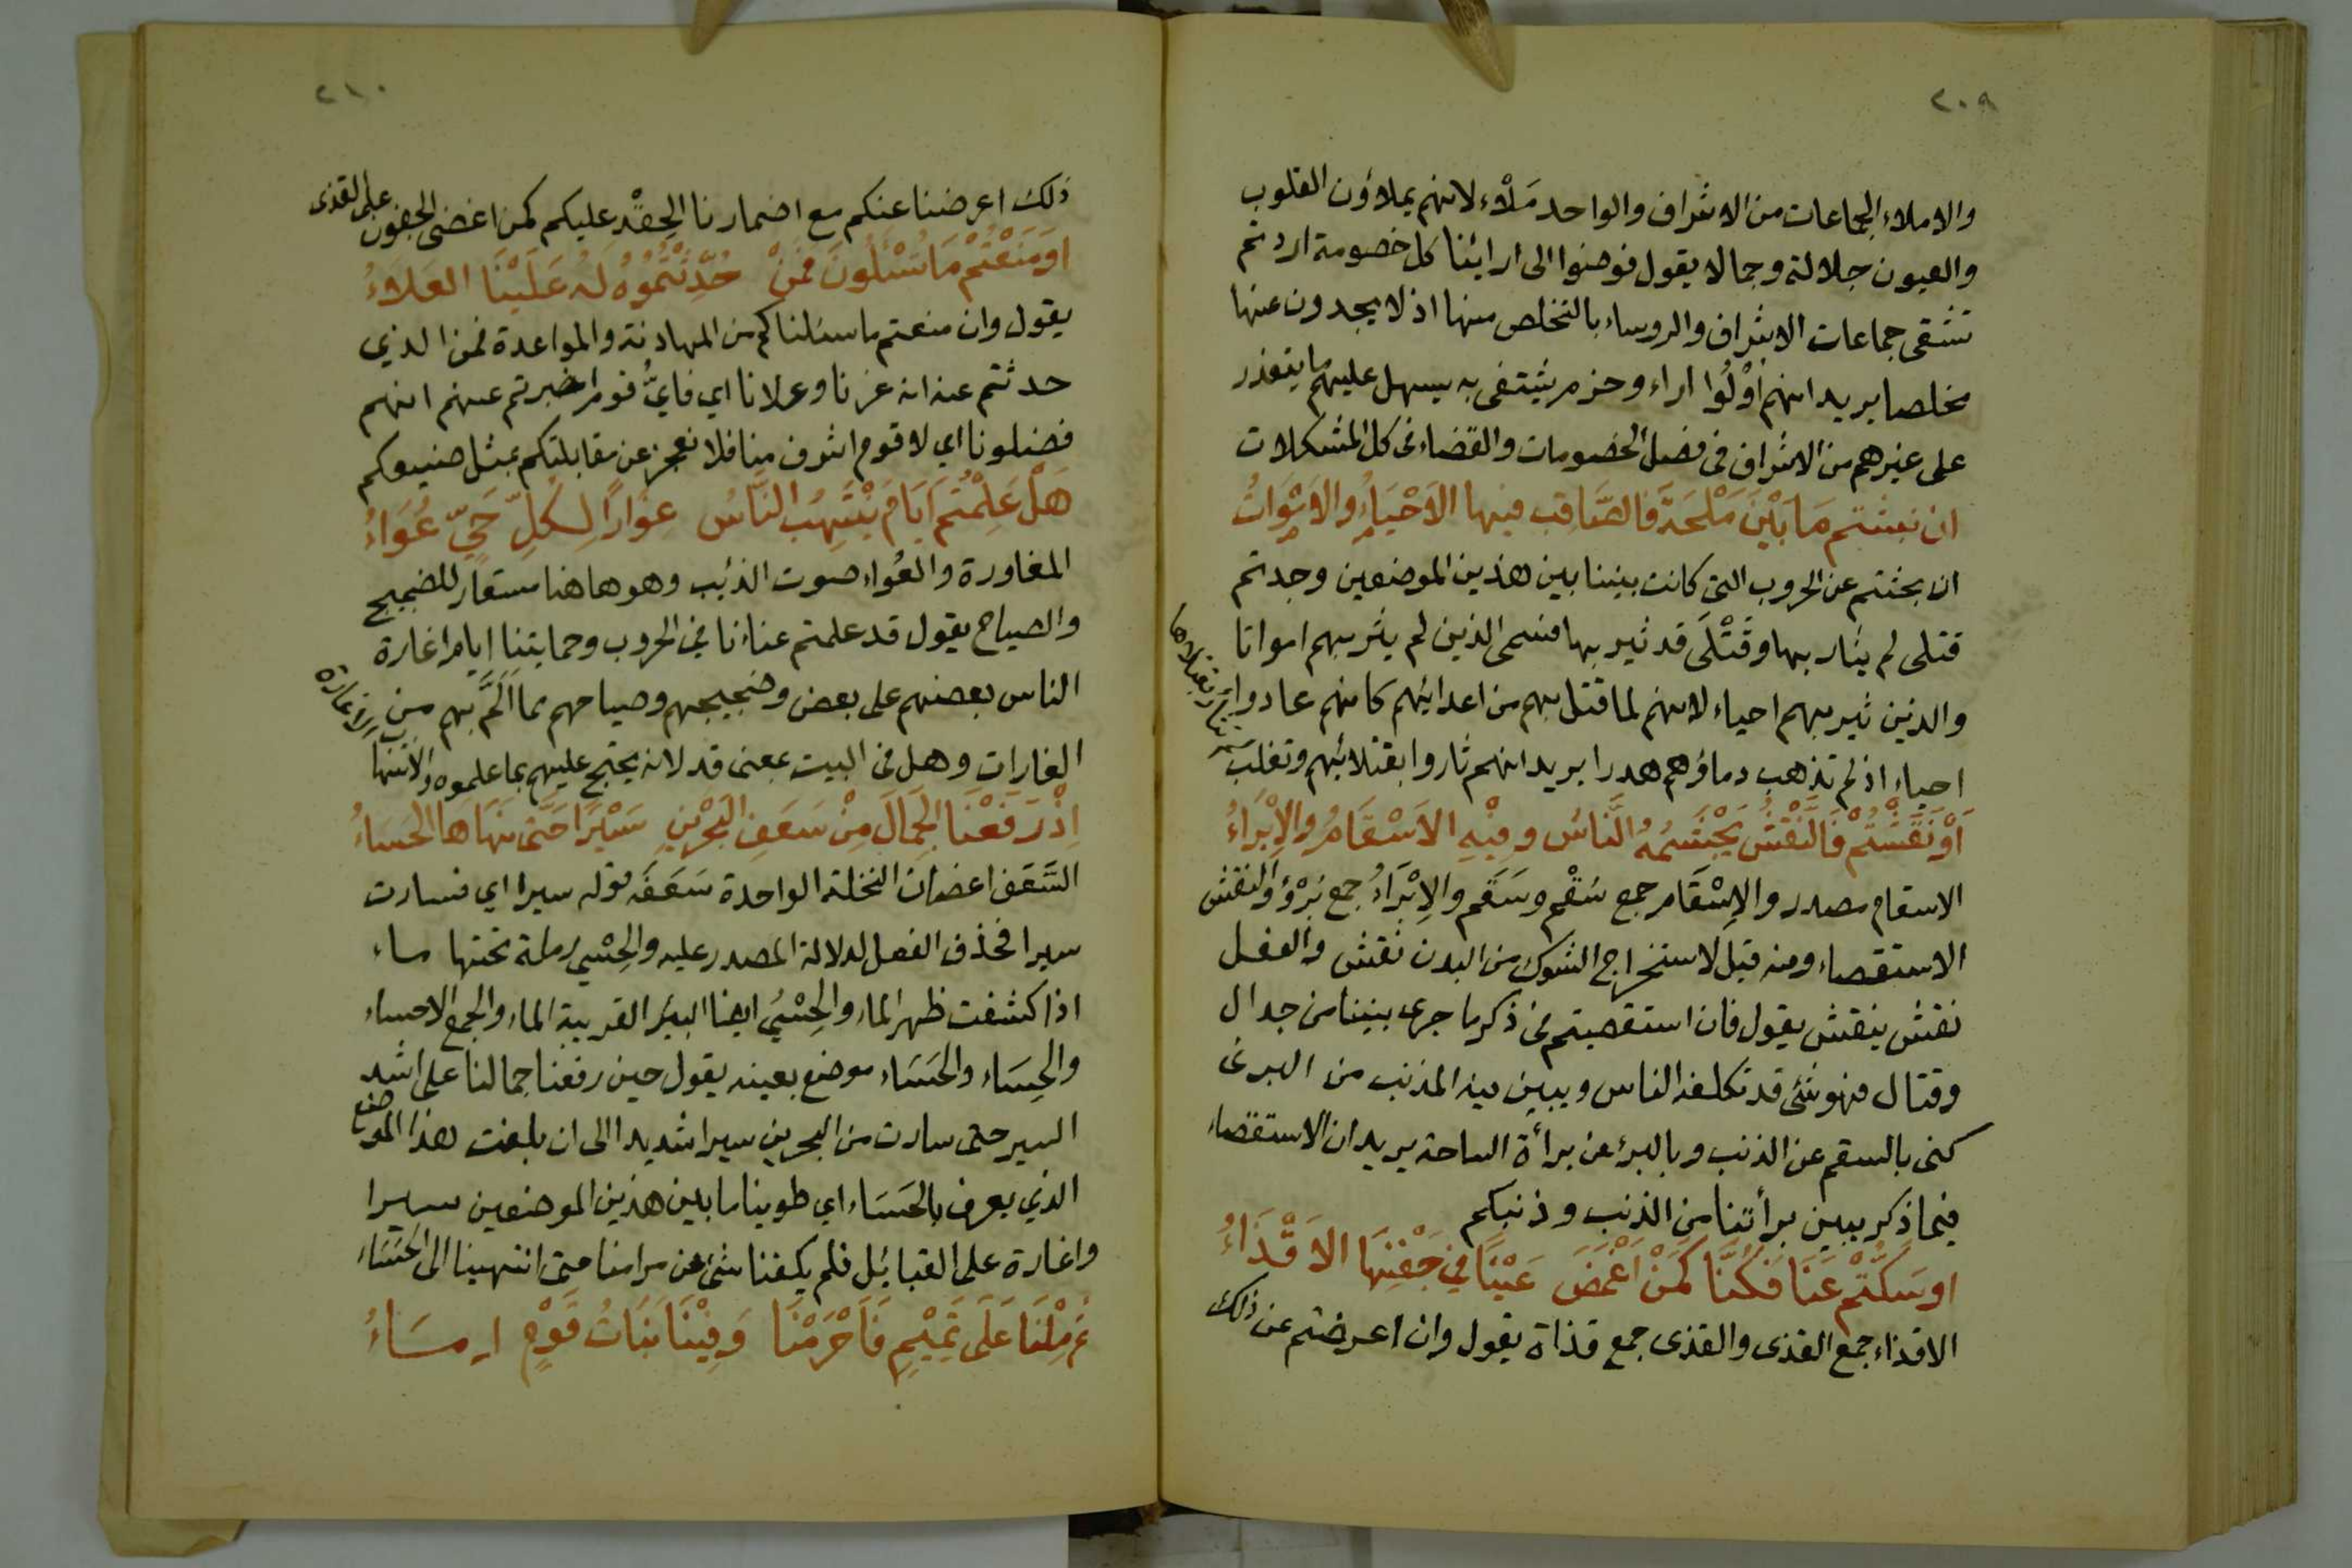 ٢٠٩
والاملاء الجماعات من الاشراف والواحد مَلْأ، لانهم يملاؤن القلوب
والعيون جلالة وجمالا يقول فوضوا الى ارائنا كل خصومة اردتم
تشقى جماعات الاشراف والروساء بالتخلص منها اذ لا يجدون عنها
مخلصا يريد انهم أوْلُوا اراء وحزم يشتفى به يسهل عليهم ما يتعذر
على غيرهم من الاشراف فى فصل الخصومات والقضاء فى كل المشكلات
ان نبشتم مَا بَيْنَ مَلْحَةَ فَالصَّاقِبِ فيها الاَحْيَاءُ والاَمْوَاتُ
ان بحثتم عن الحروب التى كانت بيننا بين هذين الموضعين وجدتم
قتلى لم يثار بها وقَتْلَى قد ثير بها فسمى الذين لم يثر بهم امواتا
والذين ثير بهم احياء لانهم لما قتل بهم من اعدائهم كانهم عادوا
احياء اذ لم تذهب دماؤهم هدرا يريد انهم ثاروا بقتلائهم وتغلب
لم تثار بقتلاها
أَوْ نَقَشْتُمْ فَالنَّقْشُ يَجْشَمُهُ النَّاسُ وفِيْهِ الاَسْقَامُ والاِبْرَاءُ
الاسقام مصدر والاِسْقَام جمع سُقْم وسَقَم والاِبْرَاءُ جمع بُرْؤ والنقش
الاستقصاء ومنه قيل لاستخراج الشوك من البدن نقش والفعل
نقش ينقش يقول فان استقصيتم فى ذكر ما جرى بيننا من جدال
وقتال فهو شئ قد تكلفه الناس ويبين فيه المذنب من البرئ
كنى بالسقم عن الذنب وبالبرء عن برأة الساحة يريد ان الاستقصاء
فيما ذكر يبين برأتنا من الذنب وذنبكم
اوسَكَتُّمْ عَنَا فَكُنَّا كَمَنْ اَغْمَضَ عَيْنًا فِي جَفْنِهَا الاَقْذَاءُ
الاقذاء جمع القذى والقذى جمع قذاة يقول وان اعرضتم عن ذلك
٢١٠
ذلك اعرضنا عنكم مع اضمارنا الحِقْد عليكم كمن اغضى الجفون على القذى
اَوْ مَنَعْتُمْ مَا تُسْئَلُونَ فَمَنْ حُدِّثْتُمُوهُ لَهُ عَلَيْنَا العَلَاءُ
يقول وان منعتم ما سئلناكم من المهادنة والمواعدة فمن الذي
حدثتم عنه انه عزنا وعلانا اي فايُّ قوم اخبرتم عنهم انهم
فضلونا اي لا قوم اشرف منا فلا نعجز عن مقابلتكم بمثل صنيعكم
هَلْ عَلِمْتُمْ اَيَّامَ يُنْتَهَبُ النَّاسُ غِوَارًا لِكُلِّ حَيٍّ عُوَاءُ
المغاورة والعُواء صوت الذئب وهو هاهنا مستعار للضجيج
والصياح يقول قد علمتم عناءنا في الحروب وحمايتنا ايام اغارة
الناس بعضهم على بعض وضجيجهم وصياحهم مما اَلَمَّ بهم من
الغارات وهل فى البيت بمعنى قد لانه يحتج عليهم بما علموه
اِذْ رَفَعْنَا الجِمَالَ مِنْ سَعَفِ البَحْرَيْنِ سَيْرًا حَتَّى نَهَاهَا الحَسَاءُ
السَّعَف اغصان النخلة الواحدة سَعَفَة قوله سيرا اي فسارت
سيرا فحذف الفعل لدلالة المصدر عليه والحِسْي رملة تحتها ماء
اذا كشفت ظهر الماء والحِسْيُ ايضا البئر القريبة الماء والجمع الاحساء
والحِسَاء والحَسَاء موضع بعينه يقول حين رفعنا جمالنا على اشد
السير حتى سارت من البحرين سيرا شديدا الى ان بلغت هذا الموضع
الذي يعرف بالحَسَاء اي طوينا ما بين هذين الموضعين سيرا
واغارة على القبائل فلم يكفنا شئ عن مرامنا حتى انتهينا الى الحَسَاء
ثم مِلْنَا عَلَى تَمِيْمٍ فَاَحْرَمْنَا وَفِيْنَا بَنَاتُ قَوْمٍ اِمَاءُ